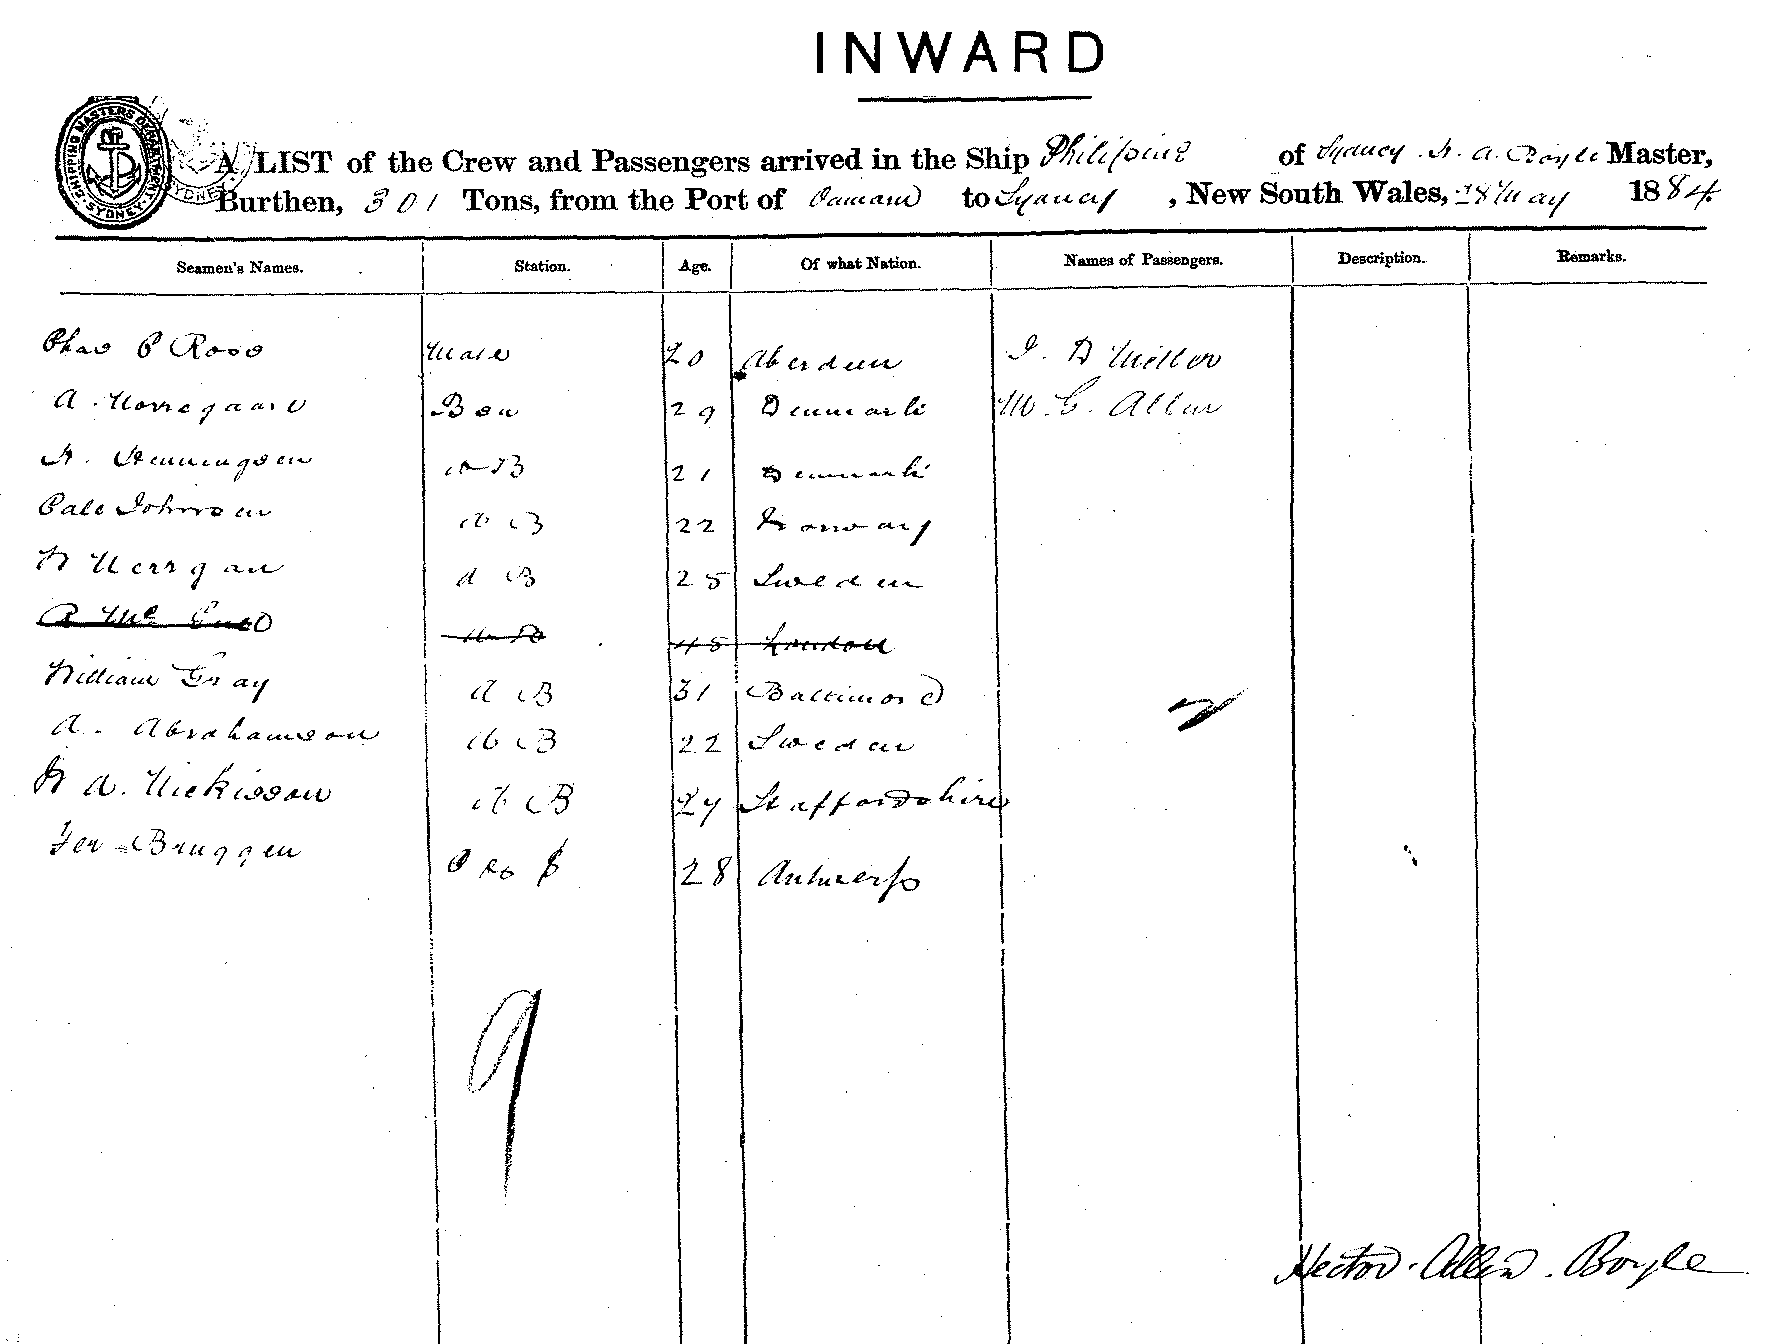 INWARD
SHIPPING MASTERS DEPARTMENT SYDNEY
A LIST of the Crew and Passengers arrived in the Ship Philipine of Sydney. H. A. Boyle Master,
Burthen, 301 Tons, from the Port of Oamaru to Sydney, New South Wales, 28 May 1884.
Seamen's Names. Station. Age. Of what Nation. Names of Passengers. Description. Remarks.
Chas P Ross Mate 20 Aberdeen J. D Miller
A. Norregaard Bsn 29 Denmark W. G. Allen
H. Henningsen AB 21 Denmark
Pale Johnsen AB 22 Norway
AB 25 Sweden
R Mc AB 45 London
William Gray AB 31 Baltimore
A. Abrahamson AB 22 Sweden
W A. Nickisson AB 27 Staffordshire
Bruggen 28 Antwerp
9 2
Hector. Allen. Boyle